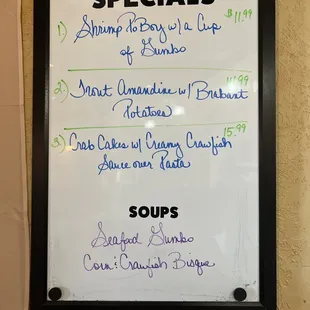 SPECIALS
1) Shrimp PoBoy w/a Cup $11.99
of Gumbo
2) Trout Amandine w/ Brabant
Potatoes
3) Crab Cakes w/ Creamy Crawfish 15.99
Sauce over Pasta
SOUPS
Seafood Gumbo
Corn & Crawfish Bisque